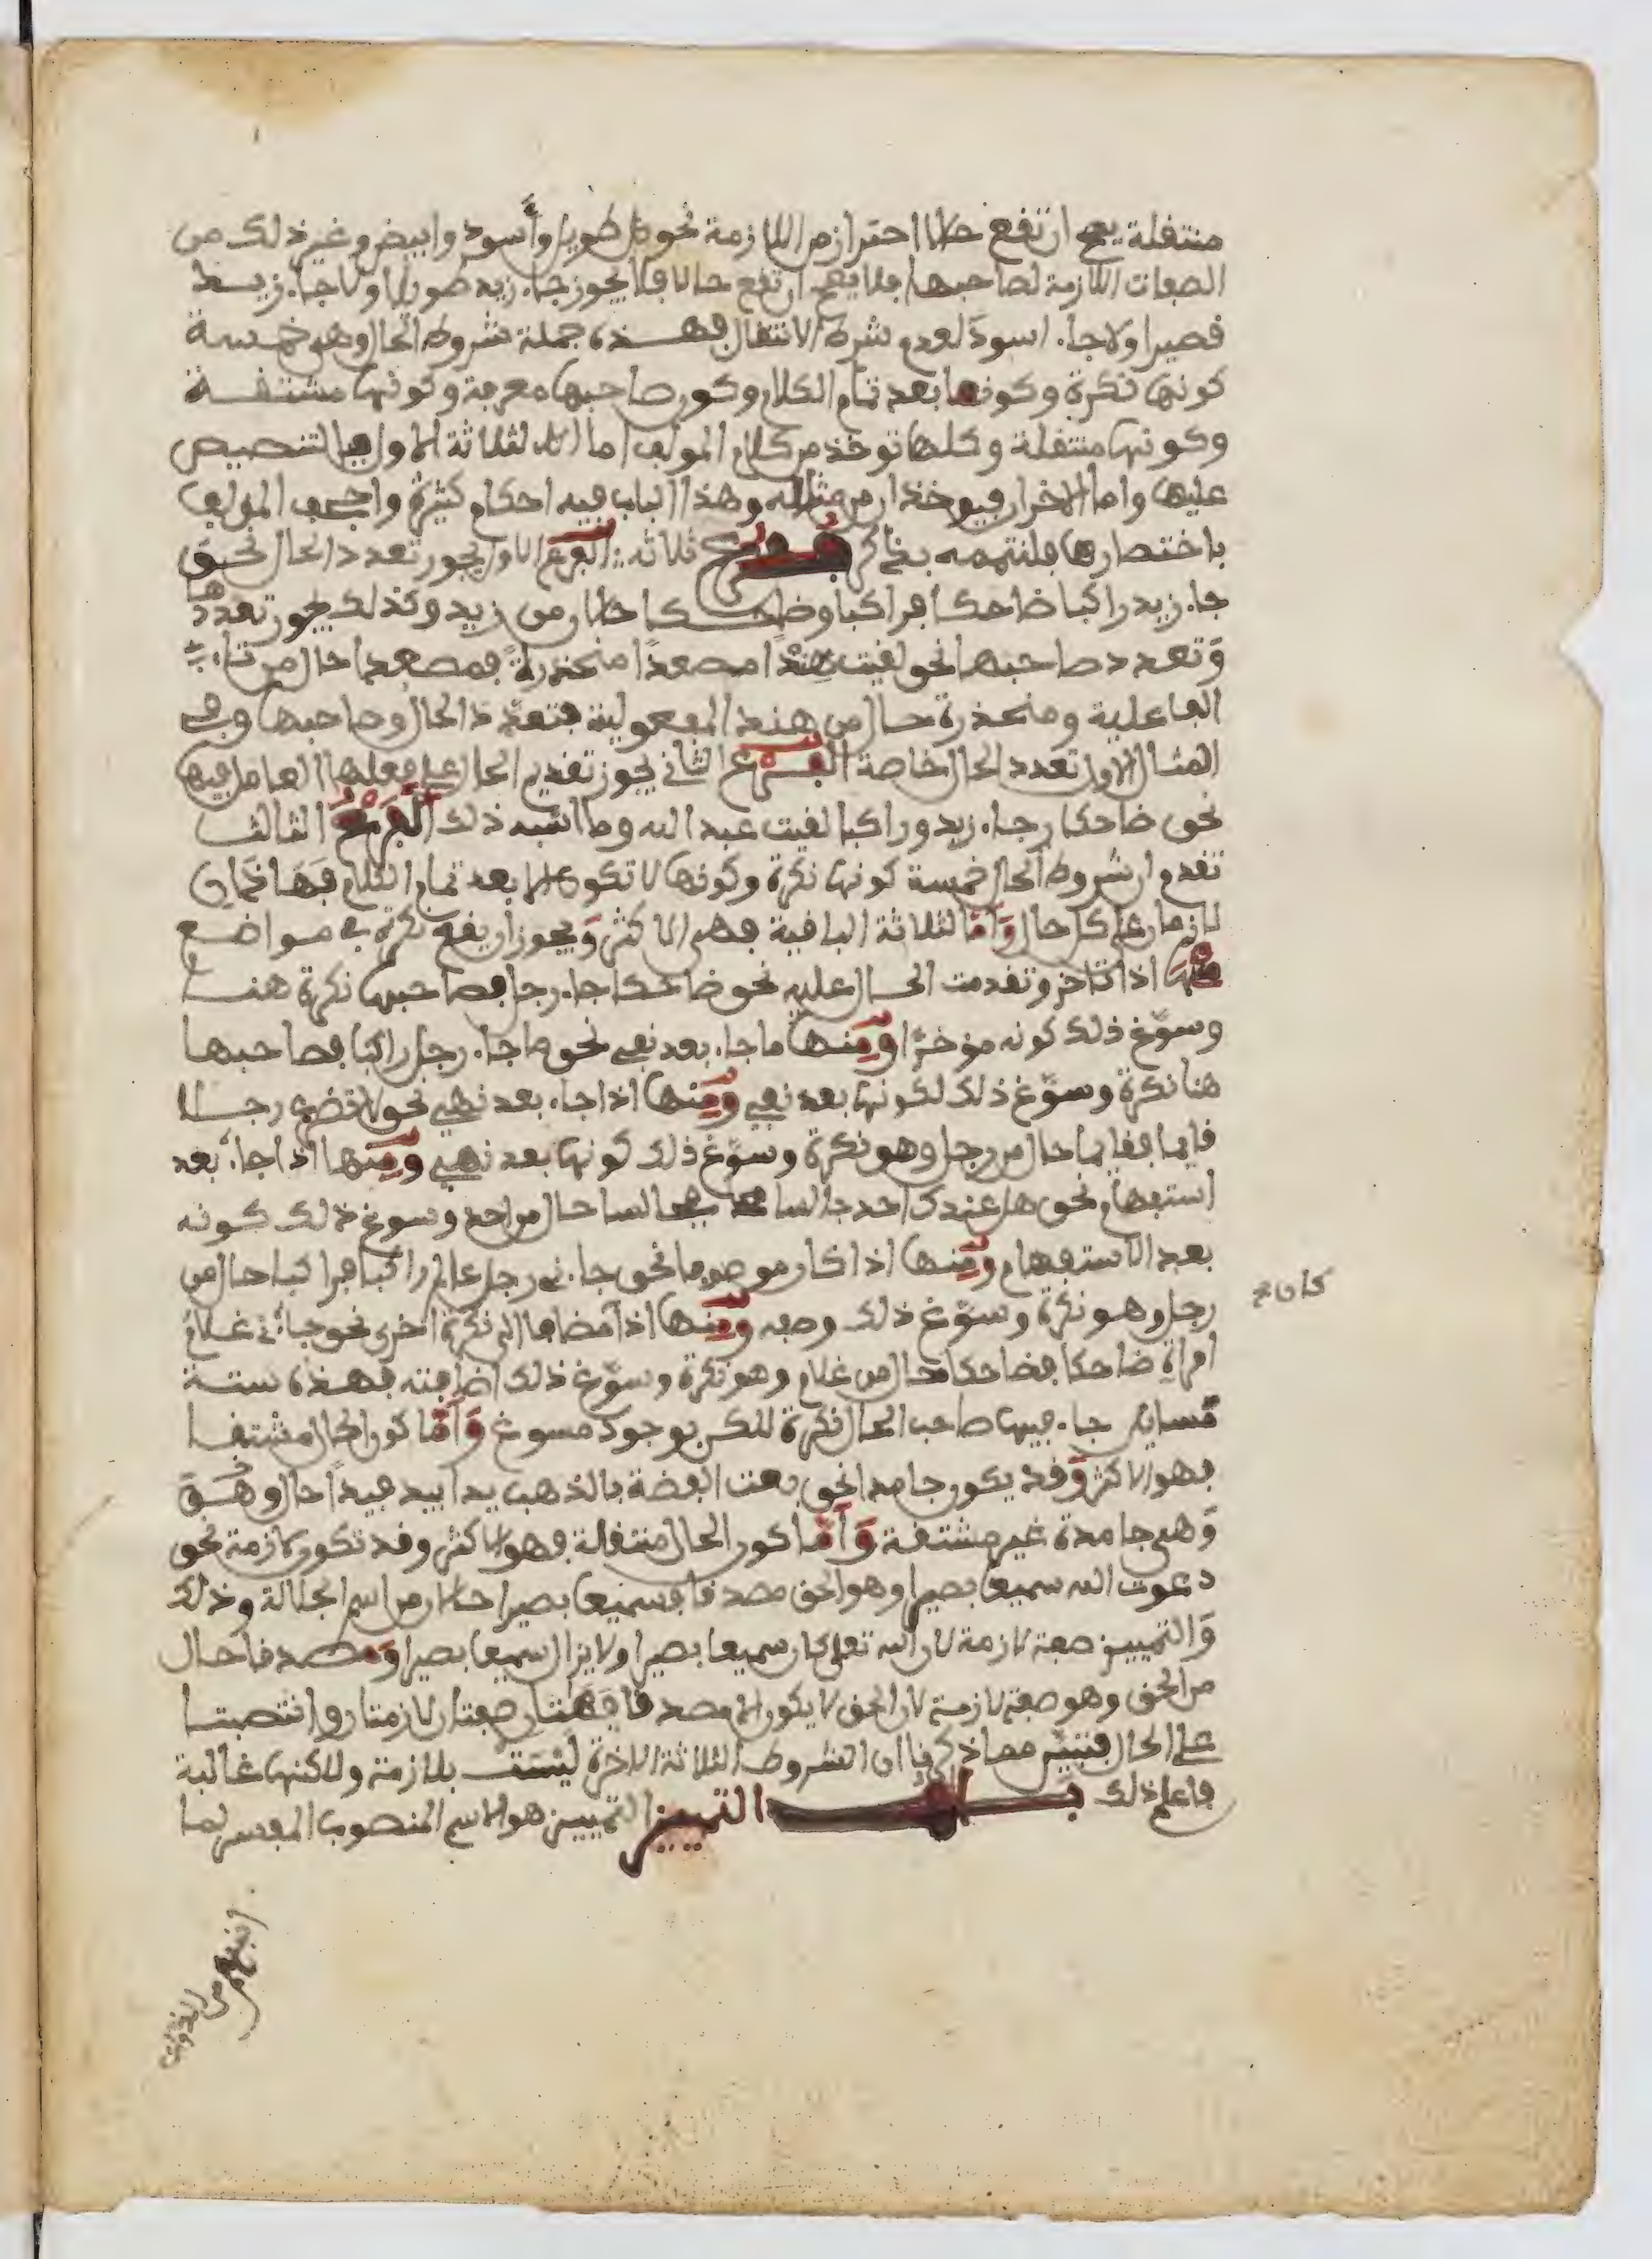 منتقلة يصح ان تقع حالا احترازمن اللازمة نحو طويل وأسود وابيض وغير ذلك من
الصفات اللازمة لصاحبها فلا يصح ان تقع حالا فلا يجوز جاء زيد طويلا ولا جاء زيد
قصيرا ولا جاء اسود لعدم شرط الانتقال فهذه جملة شروط الحال وهي خمسة
كونها نكرة وكونها بعد تمام الكلام وكون صاحبها معرفة وكونها مشتقة
وكونها منتقلة وكلها توخذ من كلام المولف اما الثلاثة الاول فبالتنصيص
عليها واما الاخران فيوخذان من مثاله وهذا الباب فيه احكام كثيرة واجحف المولف
باختصارها فلنتممه بذكر فروع ثلاثه الفرع الاول يجوز تعدد الحال نحو
جاء زيد راكبا ضاحكا فراكبا وضاحكا حالان من زيد وكذلك يجوز تعددها
وتعدد صاحبها نحو لقيت هندا مصعدا منحذرة فمصعدا حال من تاء
الفاعلية ومنحذرة حال من هند المفعولية فتعدد الحال وصاحبها وفي
المثال الاول تعدد الحال خاصة الفرع الثاني يجوز تقديم الحال على فعلها العامل فيها
نحو ضاحكا جاء زيد وراكبا لقيت عبد الله وما اشبه ذلك الفرع الثالث
تقدم ان شروط الحال خمسة كونها نكرة وكونها لا تكون الا بعد تمام الكلام فهاذان
لازمان على كل حال وأما الثلاثة الباقية فهي الاكثر ويجوز ان يقع نكرة في مواضع
منها اذا تاخر وتقدمت الحال عليه نحو ضاحكا جاء رجل فصاحبها نكرة هنا
وسوغ ذلك كونه مؤخرا ومنها ما جاء بعد نفي نحو ما جاء رجل راكبا فصاحبها
هنا نكرة وسوغ ذلك لكونها بعد نفي ومنها اذا جاء بعد نهي نحو لا تضرب رجلا
قايما فقايما حال من رجل وهو نكرة وسوغ ذلك كونها بعد نهي ومنها اذا جاء بعد
استفهام نحو هل عندك احد جالسا فجالسا حال من احد وسوغ ذلك كونه
بعد الاستفهام ومنها اذا كان موصوفا نحو جاءني رجل عالم راكبا فراكبا حال من
رجل وهو نكرة وسوغ ذلك وصفه ومنها اذا مضافا الى نكرة اخرى نحو جاءني غلام
كان صح
امراة ضاحكا فضاحكا حال من غلام وهو نكرة وسوغ ذلك اضافته فهذه ستة
مسايل جاء فيها صاحب الحال نكرة للكن بوجود مسوغ وأما كون الحال مشتقا
فهو الاكثر وقد يكون جامدا نحو بعت الفضة بالذهب يدا بيد فيدا حال وهو
وهي جامدة غير مشتقة وأما كون الحال منتقلة فهو الاكثر وقد تكون لازمة نحو
دعوت الله سميعا بصيرا وهو الحق مصدقا فسميعا بصيرا حالان من اسم الجلالة وذلك
والتمييز صفة لازمة لان الله تعلى كان سميعا بصيرا ولا يزال سميعا بصيرا ومصدقا حال
من الحق وهو صفة لازمة لان الحق لا يكون الا مصدقا فهتان صفتان لازمتان وانتصبتا
على الحال فتبين مما ذكرنا ان الشروط الثلاثة الاخرة ليست بلازمة ولاكنها غالبة
فاعلم ذلك باب التمييز التمييز هو الاسم المنصوب المفسر لما
انبهم من الذوات